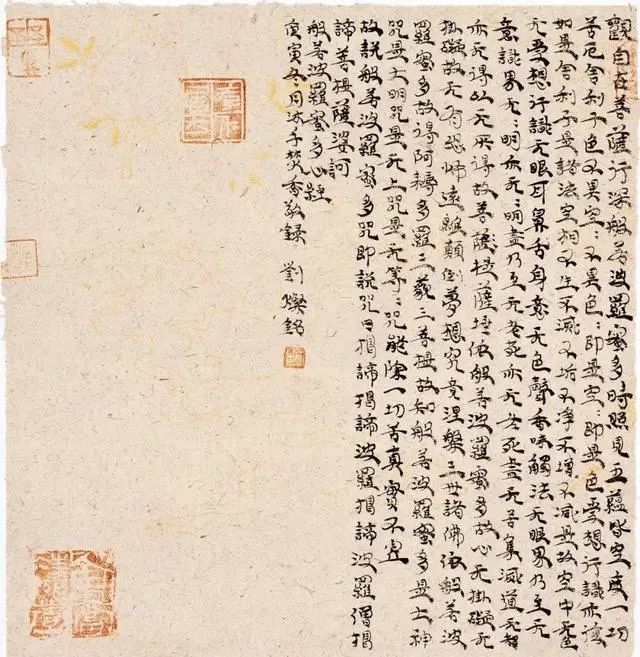 觀自在菩薩行深般若波羅蜜多時照見五蘊皆空度一切
苦厄舍利子色不異空：不異色：即是空：即是色受想行識亦復
如是舍利子是諸法空相不生不滅不垢不淨不增不減是故空中无色
无受想行識无眼耳鼻舌身意无色聲香味觸法无眼界乃至无
意識界无：明亦无：明盡乃至无老死亦无老死盡无苦集滅道无智
亦无得以无所得故菩薩提薩埵依般若波羅蜜多故心无掛礙无
掛礙故无有恐怖遠離顛倒夢想究竟涅槃三世諸佛依般若波
羅蜜多故得阿耨多羅三藐三菩提故知般若波羅蜜多是大神
咒是大明咒是无上咒是无等：咒能除一切苦真實不虛
故說般若波羅蜜多咒即說咒曰揭諦揭諦波羅揭諦波羅僧揭
諦菩提薩婆訶
般若波羅蜜多心經
庚寅冬月沐手焚香敬錄 劉燦銘